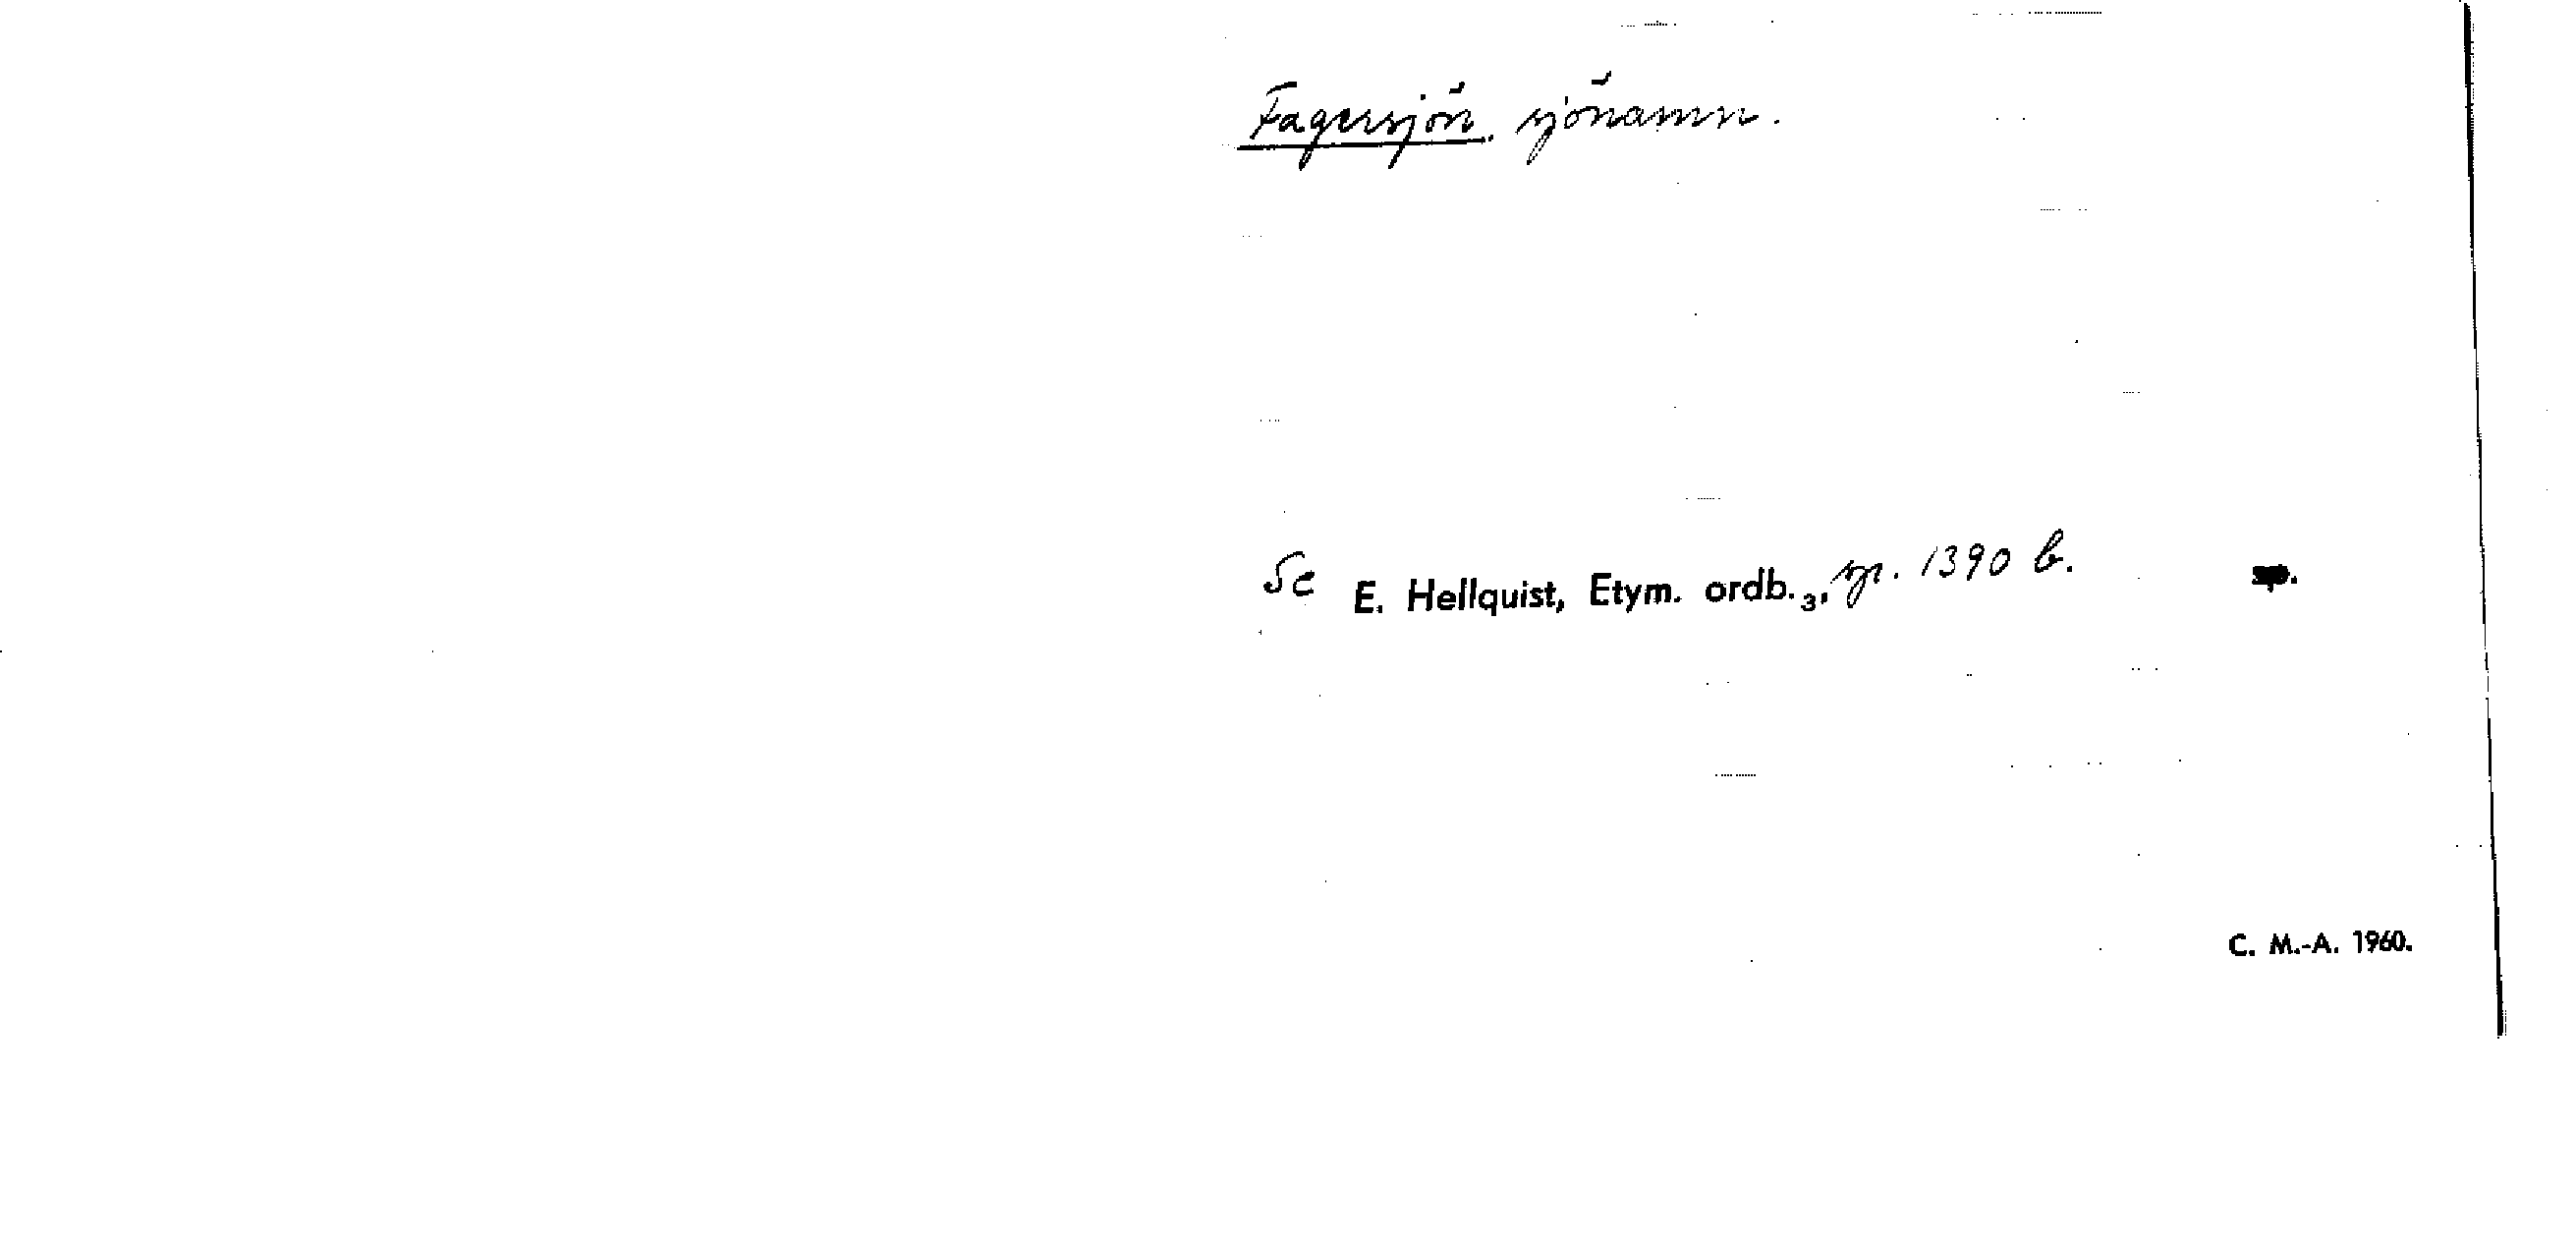 Fagersjön, sjönamn.
Se E. Hellquist, Etym. ordb.₃, sp. 1390 b.
C. M.-A. 1960.